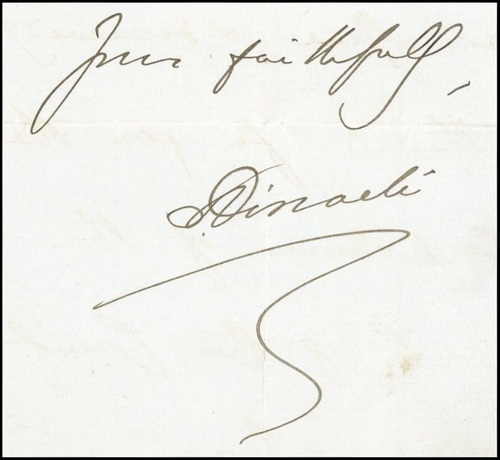 Yours faithfully,
Disraeli